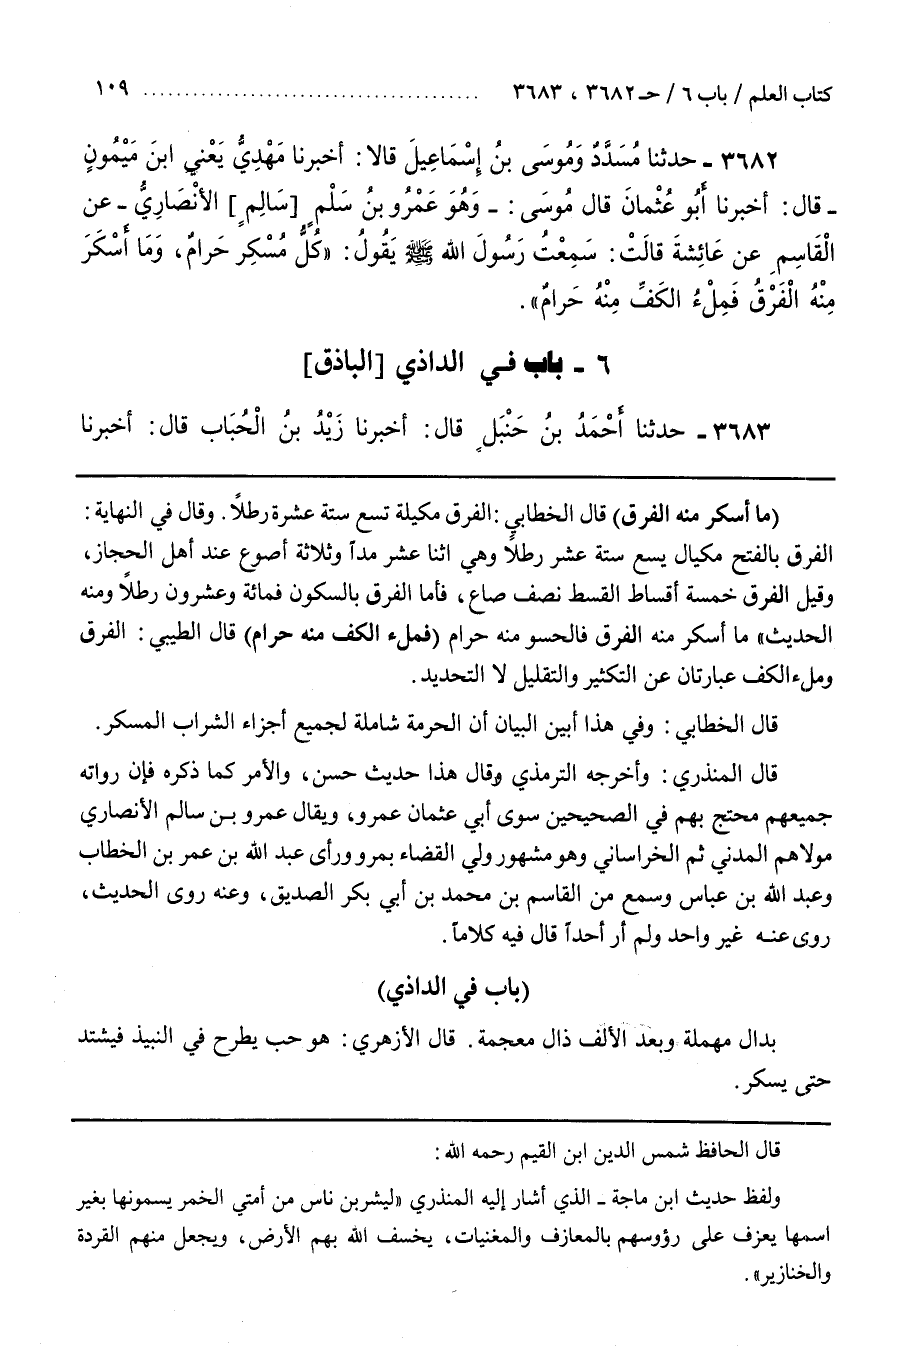 كتاب العلم / باب ٦ / حـ ٣٦٨٢ ، ٣٦٨٣ ........................................ ١٠٩
٣٦٨٢ ـ حدثنا مُسَدَّدٌ وَمُوسَى بنُ إِسْمَاعِيلَ قالا: أخبرنا مَهْدِيٌّ يَعْني ابنَ مَيْمُونٍ
ـ قال: أخبرنا أَبُو عُثْمانَ قال مُوسَى: ـ وَهُوَ عَمْرُو بنُ سَلْمٍ [سَالِمٍ] الأنْصَارِيُّ ـ عن
الْقَاسِمِ عن عَائِشةَ قالَتْ: سَمِعْتُ رَسُولَ الله ﷺ يَقُولُ: «كُلُّ مُسْكِرٍ حَرامٌ، وَمَا أَسْكَرَ
مِنْهُ الْفَرْقُ فَمِلْءُ الكَفِّ مِنْهُ حَرامٌ».
٦ ـ باب في الداذي [الباذق]
٣٦٨٣ ـ حدثنا أَحْمَدُ بنُ حَنْبَلٍ قال: أخبرنا زَيْدُ بنُ الْحُبَاب قال: أخبرنا
(ما أسكر منه الفرق) قال الخطابي: الفرق مكيلة تسع ستة عشرة رطلاً. وقال في النهاية:
الفرق بالفتح مكيال يسع ستة عشر رطلاً وهي اثنا عشر مداً وثلاثة أصوع عند أهل الحجاز،
وقيل الفرق خمسة أقساط القسط نصف صاع، فأما الفرق بالسكون فمائة وعشرون رطلاً ومنه
الحديث» ما أسكر منه الفرق فالحسو منه حرام (فملء الكف منه حرام) قال الطيبي: الفرق
وملء الكف عبارتان عن التكثير والتقليل لا التحديد.
قال الخطابي: وفي هذا أبين البيان أن الحرمة شاملة لجميع أجزاء الشراب المسكر.
قال المنذري: وأخرجه الترمذي وقال هذا حديث حسن، والأمر كما ذكره فإن رواته
جميعهم محتج بهم في الصحيحين سوى أبي عثمان عمرو، ويقال عمرو بن سالم الأنصاري
مولاهم المدني ثم الخراساني وهو مشهور ولي القضاء بمرو ورأى عبد الله بن عمر بن الخطاب
وعبد الله بن عباس وسمع من القاسم بن محمد بن أبي بكر الصديق، وعنه روى الحديث،
روى عنه غير واحد ولم أر أحداً قال فيه كلاماً.
(باب في الداذي)
بدال مهملة وبعد الألف ذال معجمة. قال الأزهري: هو حب يطرح في النبيذ فيشتد
حتى يسكر.
قال الحافظ شمس الدين ابن القيم رحمه الله:
ولفظ حديث ابن ماجة ـ الذي أشار إليه المنذري «ليشربن ناس من أمتي الخمر يسمونها بغير
اسمها يعزف على رؤوسهم بالمعازف والمغنيات، يخسف الله بهم الأرض، ويجعل منهم القردة
والخنازير».